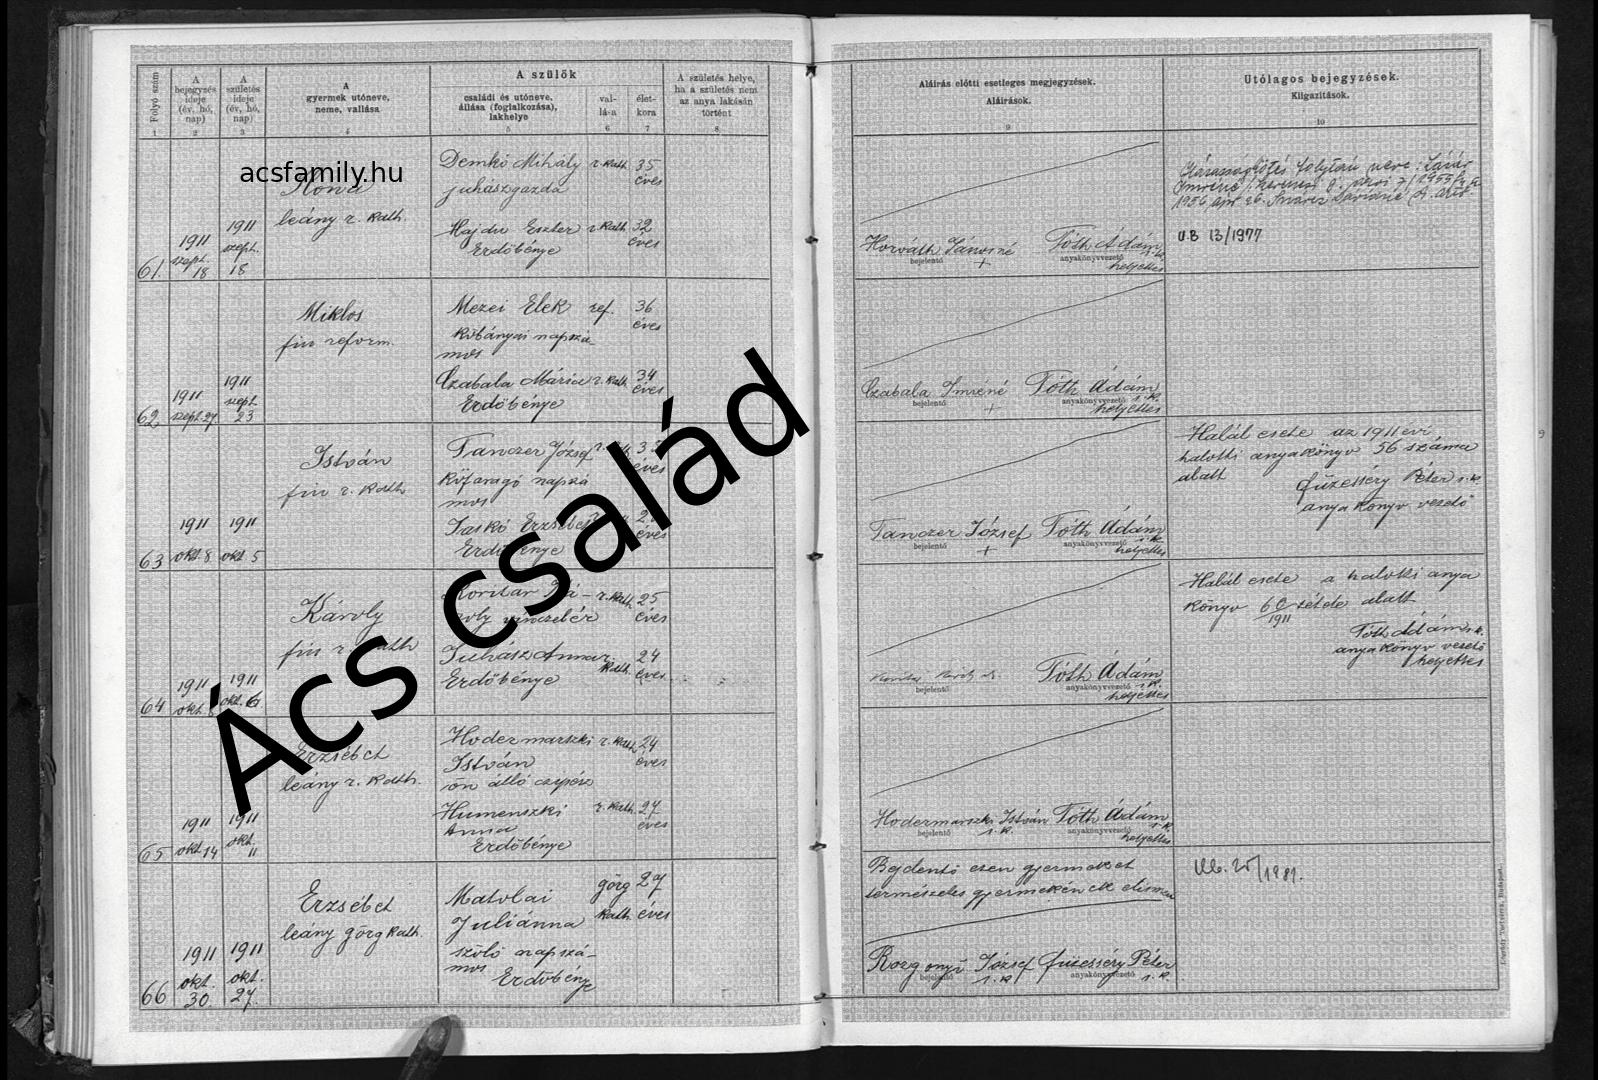 Folyó szám
A bejegyzés ideje (év, hó, nap)
A születés ideje (év, hó, nap)
A gyermek utóneve, neme, vallása
A szülők
családi és utóneve, állása (foglalkozása), lakhelye
val-lá-a
élet-kora
A születés helye, ha a születés nem az anya lakásán történt
Aláírás előtti esetleges megjegyzések.
Aláírások.
Utólagos bejegyzések.
Kiigazítások.
1 2 3 4 5 6 7 8 9 10
acsfamily.hu
Ács család
61
1911 szept. 18
1911 szept. 18
Ilona
leány r. kath.
Demkó Mihály r. kath. 35 éves
juhászgazda
Hajdu Eszter r. kath. 32 éves
Erdőbénye
Horváth Jánosné
bejelentő
+
Tóth Ádám s. k.
anyakönyvvezető
helyettes
U.B 13/1977
62
1911 szept. 27
1911 szept. 23
Miklos
fiu reform.
Mezei Elek ref. 36 éves
Kőbányai napszá-
mos
Czabala Mária r. kath. 34 éves
Erdőbénye
Czabala Imréné
bejelentő
+
Tóth Ádám s. k.
anyakönyvvezető
helyettes
63
1911 okt. 8
1911 okt. 5
István
fiu r. kath.
Tanczer József
Kőfaragó napszá
mos
Jaskó Erzsébet
Erdőbénye
éves
Tanczer József
bejelentő
+
Tóth Ádám s. k.
anyakönyvvezető
helyettes
Halál esete az 1911 évi
halotti anyakönyv 56 száma
alatt
Füzesséry Péter s. k.
anyakönyv vezető
64
1911 okt.
1911 okt. 6
Károly
fiu r. kath
r. kath. 25 éves
vinczellér
Juhasz Anna r. kath. 24 éves
Erdőbénye
bejelentő
Tóth Ádám s. k.
anyakönyvvezető
helyettes
Halál esete a halotti anya
könyv 60/1911 tétele alatt
Tóth Ádám s. k.
anyakönyv vezető
helyettes
65
1911 okt. 14
1911 okt. 11
Erzsébet
leány r. kath.
Hodermarszki r. kath. 24 éves
István
ön álló czipész
Humenszki r. kath. 27 éves
Anna
Erdőbénye
Hodermarszki István
bejelentő
s. k.
Tóth Ádám s. k.
anyakönyvvezető
helyettes
66
1911 okt. 30
1911 okt. 27.
Erzsébet
leány görg kath.
Matolai görg 27
Juliánna kath. éves
szőlő napszá-
mos
Erdőbénye
Bejelentő ezen gyermeket
természetes gyermekének elismeri
Rozgonyi József
bejelentő
s. k.
Füzesséry Péter
anyakönyvvezető
s. k.